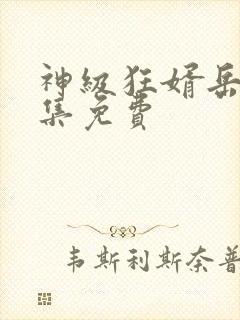 神级狂婿岳
集免费
韦斯利斯奈普